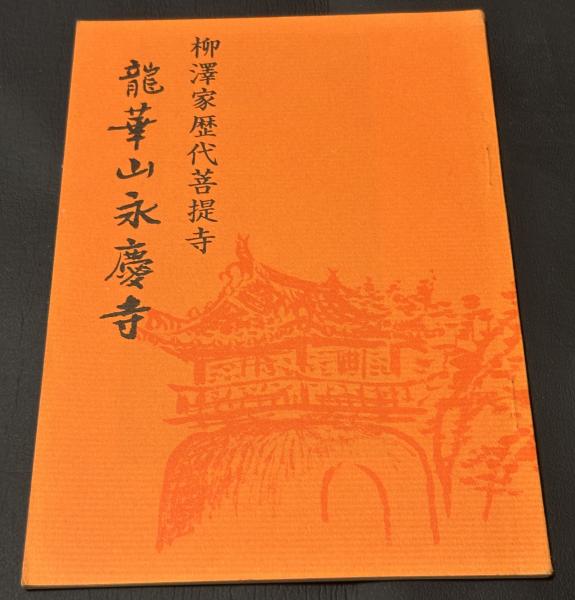 柳澤家歴代菩提寺
龍華山永慶寺